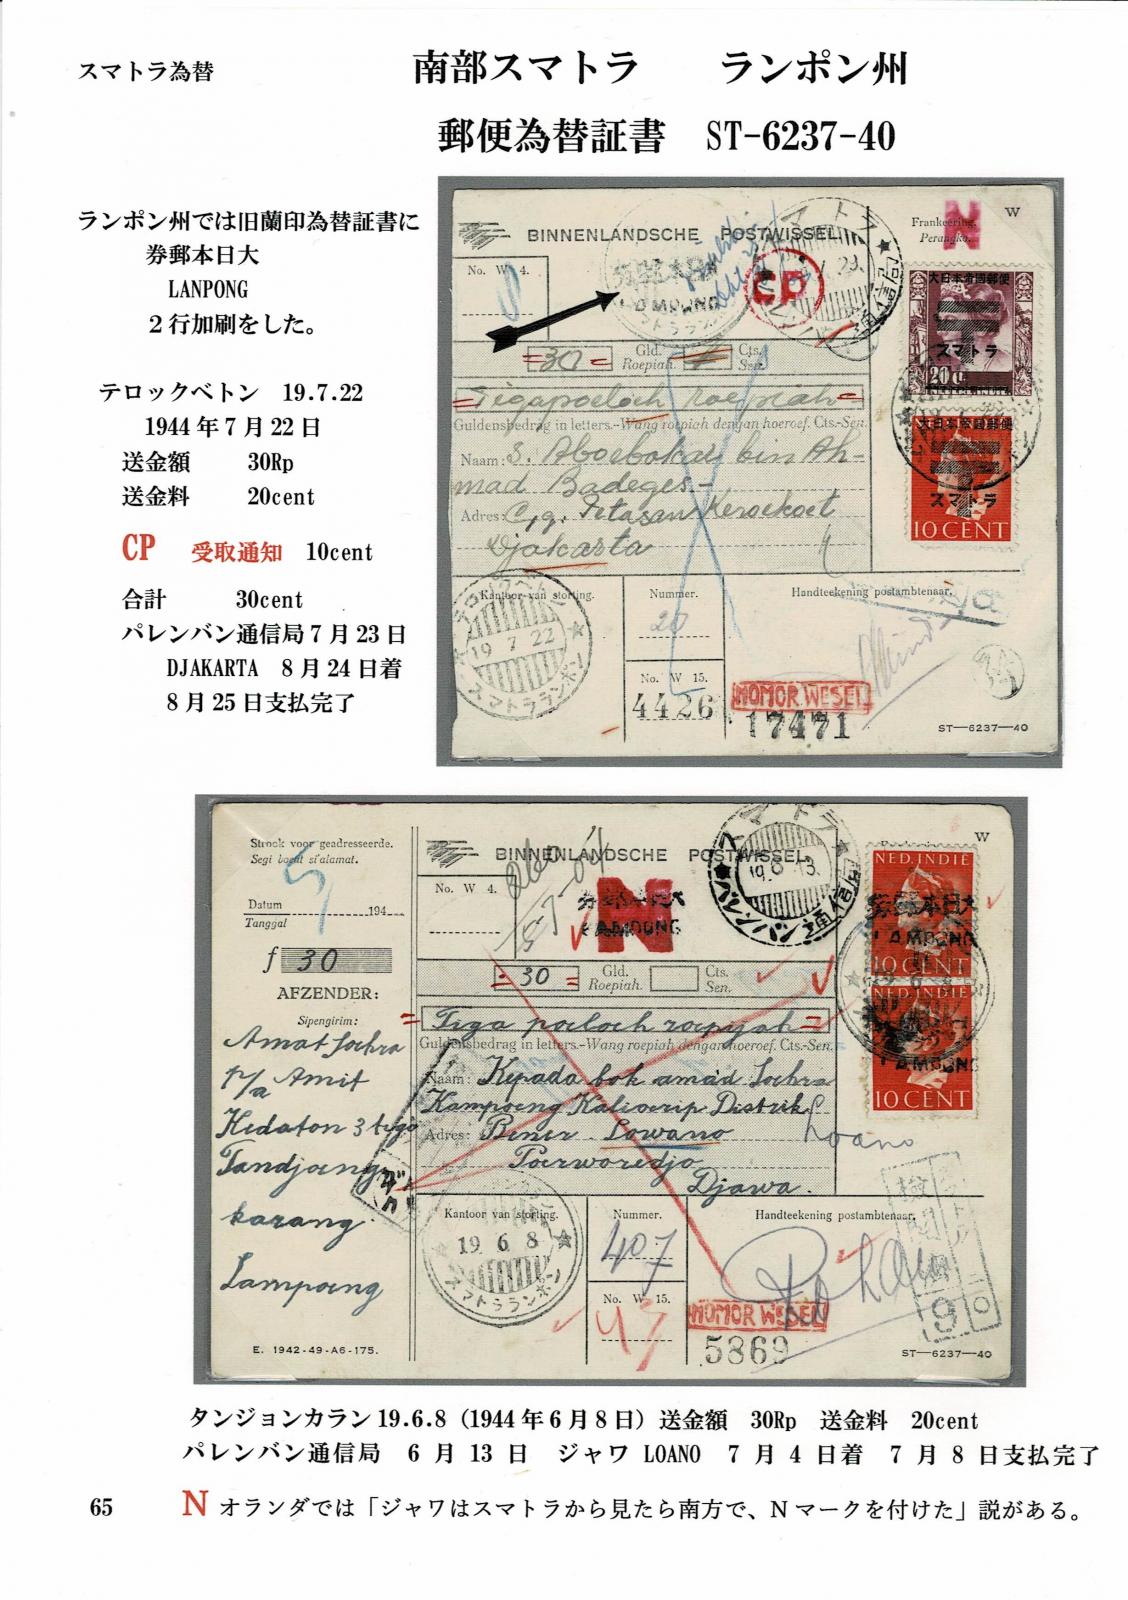 スマトラ為替
南部スマトラ　ランポン州
郵便為替証書　ST-6237-40
ランポン州では旧蘭印為替証書に
券郵本日大
LANPONG
２行加刷をした。
テロックベトン　19.7.22
1944年7月22日
送金額　30Rp
送金料　20cent
CP　受取通知　10cent
合計　30cent
パレンバン通信局7月23日
DJAKARTA　8月24日着
8月25日支払完了
BINNENLANDSCHE POSTWISSEL
N
W
Frankeering.
Perangko.
No. W 4.
券郵本日大
LAMPONG
CP
大日本帝國郵便
スマトラ
20 ct
大日本帝國郵便
スマトラ
10 CENT
=30=
Gld.
Roepiah.
Cts.
Sen.
=Tigapoeloch roepiah=
Guldensbedrag in letters.-Wang roepiah dengan hoeroef. Cts.-Sen.
Naam: S. Aboebakar bin Ah-
mad Badeges-
Adres:
Djakarta
Kantoor van storting.
19 7 22
スマトラランポン
Nummer.
20
No. W 15.
4426
Handteekening postambtenaar.
NOMOR WESEL
17471
ST—6237—40
Strook voor geadresseerde.
Segi boeat si'alamat.
Datum
Tanggal
194
f 30
AFZENDER:
Sipengirim:
Amat Sochra
p/a Amit
Kedaton 3 tego
Tandjoeng
karang
Lampoeng
E. 1942-49-A6-175.
BINNENLANDSCHE POSTWISSEL
W
No. W 4.
N
券郵本日大
LAMPONG
スマトラ
19.6.13.
NED. INDIE
券郵本日大
LAMPONG
10 CENT
NED. INDIE
LAMPONG
10 CENT
=30=
Gld.
Roepiah.
Cts.
Sen.
=Tiga poeloch roepijah=
Guldensbedrag in letters.-Wang roepiah dengan hoeroef. Cts.-Sen.
Naam: Kepada bok amad Sochra
Kampoeng Kalioerip Distrik
Adres: Bener Lowano
Loano
Poerworedjo
Djawa.
Kantoor van storting.
19 6 8
スマトラランポン
Nummer.
407
No. W 15.
Handteekening postambtenaar.
NOMOR WESEL
5869
ST—6237—40
タンジョンカラン19.6.8（1944年6月8日）送金額　30Rp　送金料　20cent
パレンバン通信局　6月13日　ジャワ LOANO　7月4日着　7月8日支払完了
65
N オランダでは「ジャワはスマトラから見たら南方で、Nマークを付けた」説がある。